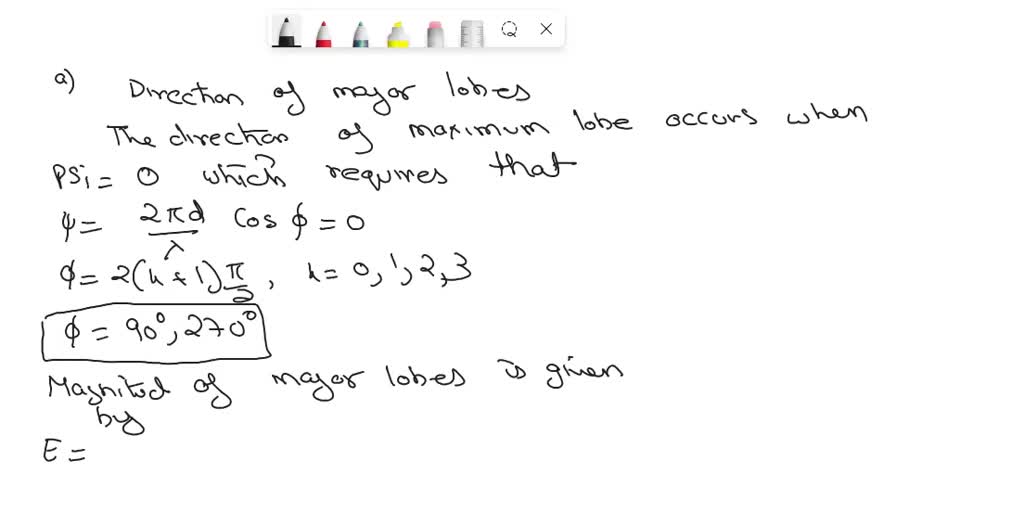 a) Direction of major lobes
The direction of maximum lobe occurs when
Psi = 0 which requires that
ψ = 2πd/λ cos ϕ = 0
ϕ = 2(k+1)π/2, k = 0, 1, 2, 3
ϕ = 90°, 270°
Magnitud of major lobes is given
by
E =